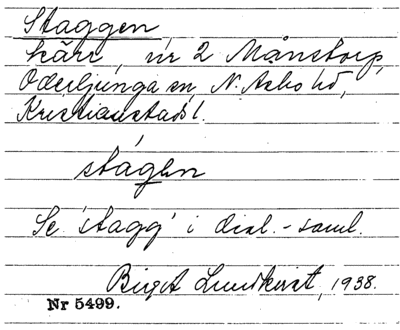 Staggen
kärr, nr 2 Månstorp,
Oderljunga sn, N. Åsbo hd,
Kristianstads l.
stágen
Se 'stagg' i dial.-saml.
Birgit Lundkvist, 1938.
Nr 5499.